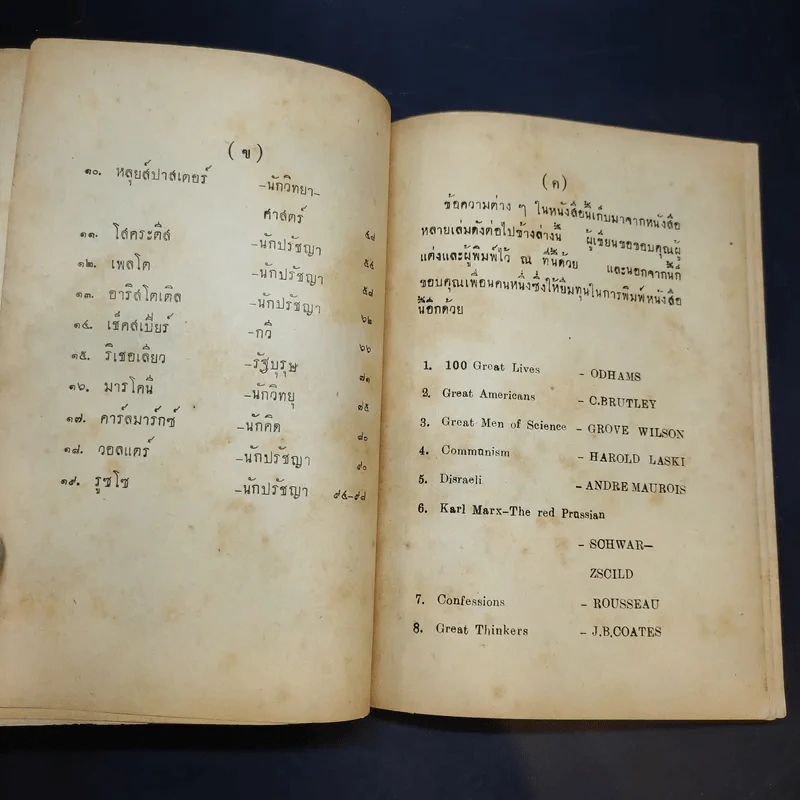 (ข)
๑๐. หลุยส์ปาสเตอร์ -นักวิทยา-
ศาสตร์ ๔๘
๑๑. โสคระตีส -นักปรัชญา ๕๔
๑๒. เพลโต -นักปรัชญา ๕๘
๑๓. อาริสโตเติล -นักปรัชญา ๖๒
๑๔. เช็คสเปียร์ -กวี ๖๖
๑๕. ริเชอเลียว -รัฐบุรุษ ๗๑
๑๖. มารโคนี -นักวิทยุ ๗๕
๑๗. คาร์ลมาร์กซ์ -นักคิด ๘๐
๑๘. วอลแตร์ -นักปรัชญา ๙๐
๑๙. รูซโซ -นักปรัชญา ๙๔-๙๘
(ค)
ข้อความต่าง ๆ ในหนังสือนี้เก็บมาจากหนังสือ
หลายเล่มดังต่อไปข้างล่างนี้ ผู้เขียนขอขอบคุณผู้
แต่งและผู้พิมพ์ไว้ ณ ที่นี้ด้วย และนอกจากนี้ก็
ขอบคุณเพื่อนคนหนึ่งซึ่งให้ยืมทุนในการพิมพ์หนังสือ
นี้อีกด้วย
1. 100 Great Lives - ODHAMS
2. Great Americans - C.BRUTLEY
3. Great Men of Science - GROVE WILSON
4. Communism - HAROLD LASKI
5. Disraeli - ANDRE MAUROIS
6. Karl Marx-The red Prussian
- SCHWAR-
ZSCILD
7. Confessions - ROUSSEAU
8. Great Thinkers - J.B.COATES